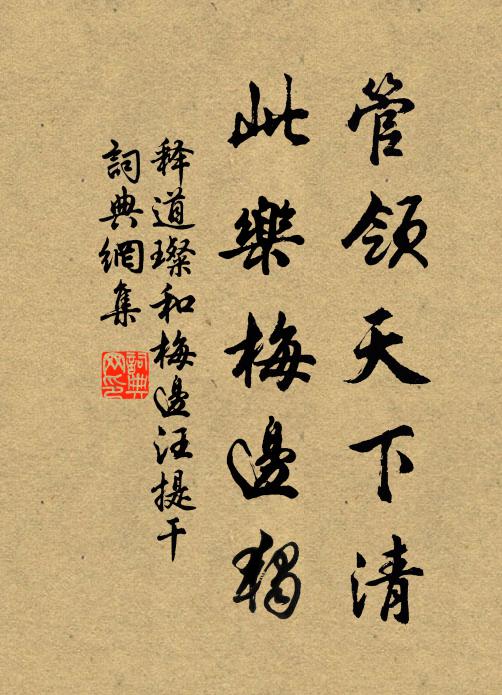 管領天下清
此樂梅邊獨
释道璨和梅邊汪提干
詞典網集
詞典網印